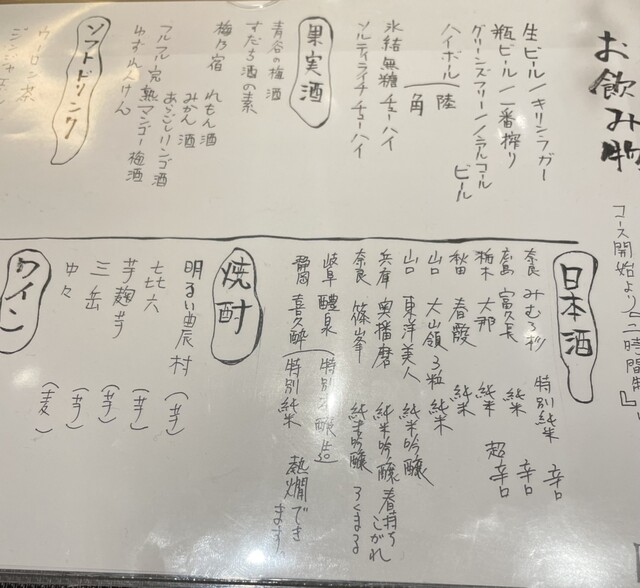 お飲み物
コース開始より『二時間制』
生ビール/キリンラガー
瓶ビール/一番搾り
グリーンズフリー/ノンアルコールビール
ハイボール(陸
角
氷結無糖チューハイ
ソルティライチチューハイ
果実酒
青谷の梅酒
すだち酒の素
梅乃宿 れもん酒
みかん酒
あらごしリンゴ酒
フルフル完熟マンゴー梅酒
ゆずれんけん
ソフトドリンク
ウーロン茶
ジンジャエール
日本酒
奈良 みむろ杉 特別純米 辛口
広島 富久長 純米 辛口
栃木 大那 純米 超辛口
秋田 春霞 純米
山口 大山嶺3粒 純米
山口 東洋美人 純米吟醸
兵庫 奥播磨 純米吟醸 春待ちこがれ
奈良 篠峯 純米吟醸 ろくまる
岐阜 醴泉 (特別本醸造
静岡 喜久酔 (特別純米 熱燗できます。
焼酎
明るい農村 (芋)
㐂六 (芋)
芋麹芋 (芋)
三岳 (芋)
中々 (麦)
ワイン